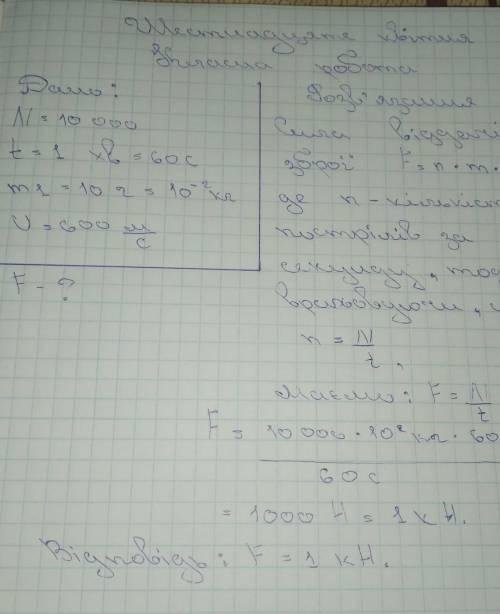 Шестнадцяте квітня
Класна робота
Дано:
N = 10 000
t = 1 хв = 60 с
m1 = 10 г = 10⁻² кг
U = 600 м/с
F - ?
Розв'язання
Сила віддачі
зброї F = n · m ·
де n - кількіст
пострілів за
секунду, тоді
враховуючи, щ
n = N/t,
Маємо: F = N/t
F = 10 000 · 10² кг · 60
60 с
= 1000 Н = 1 кН.
Відповідь: F = 1 кН.